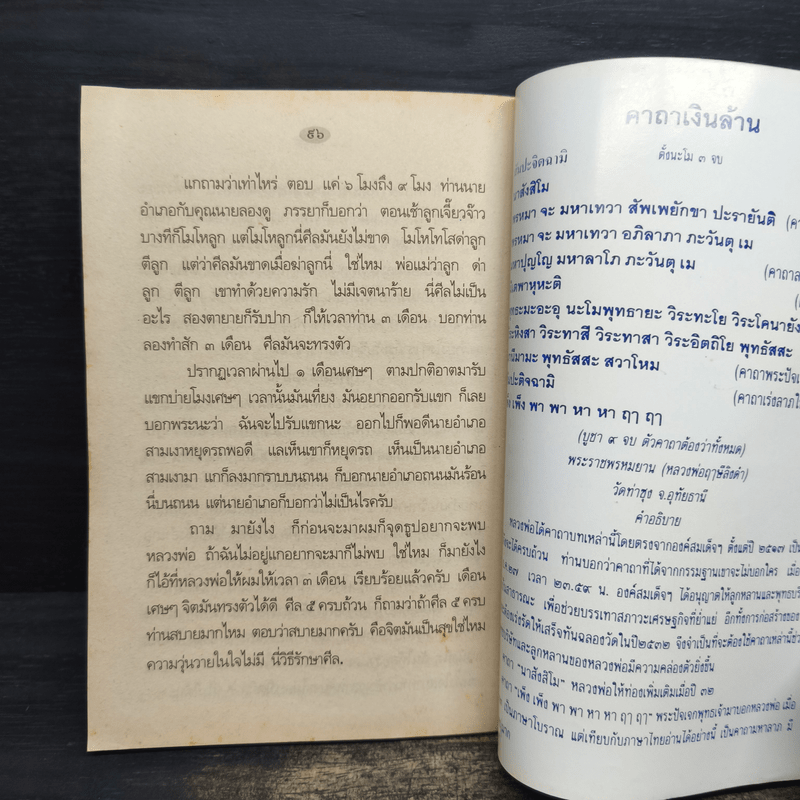 ๙๖
แกถามว่าเท่าไหร่ ตอบ แค่ ๖ โมงถึง ๙ โมง ท่านนาย
อำเภอกับคุณนายลองดู ภรรยาก็บอกว่า ตอนเช้าลูกเจี๊ยวจ๊าว
บางทีก็โมโหลูก แต่โมโหลูกนี่ศีลมันยังไม่ขาด โมโหโทโสด่าลูก
ตีลูก แต่ว่าศีลมันขาดเมื่อฆ่าลูกนี่ ใช่ไหม พ่อแม่ว่าลูก ด่า
ลูก ตีลูก เขาทำด้วยความรัก ไม่มีเจตนาร้าย นี่ศีลไม่เป็น
อะไร สองตายายก็รับปาก ก็ให้เวลาท่าน ๓ เดือน บอกท่าน
ลองทำสัก ๓ เดือน ศีลมันจะทรงตัว
ปรากฏเวลาผ่านไป ๑ เดือนเศษๆ ตามปกติอาตมารับ
แขกบ่ายโมงเศษๆ เวลานั้นมันเที่ยง มันอยากออกรับแขก ก็เลย
บอกพระนะว่า ฉันจะไปรับแขกนะ ออกไปก็พอดีนายอำเภอ
สามเงาหยุดรถพอดี แลเห็นเขาก็หยุดรถ เห็นเป็นนายอำเภอ
สามเงามา แกก็ลงมากราบบนถนน ก็บอกนายอำเภอถนนมันร้อน
นี่บนถนน แต่นายอำเภอก็บอกว่าไม่เป็นไรครับ
ถาม มายังไง ก็ก่อนจะมาผมก็จุดธูปอยากจะพบ
หลวงพ่อ ถ้าฉันไม่อยู่แกอยากจะมาก็ไม่พบ ใช่ไหม ก็มายังไง
ก็ไอ้ที่หลวงพ่อให้ผมให้เวลา ๓ เดือน เรียบร้อยแล้วครับ เดือน
เศษๆ จิตมันทรงตัวได้ดี ศีล ๕ ครบถ้วน ก็ถามว่าถ้าศีล ๕ ครบ
ท่านสบายมากไหม ตอบว่าสบายมากครับ คือจิตมันเป็นสุขใช่ไหม
ความวุ่นวายในใจไม่มี นี่วิธีรักษาศีล.
คาถาเงินล้าน
ตั้งนะโม ๓ จบ
ปะจิตฉามิ
นาสังสิโม
พรหมา จะ มหาเทวา สัพเพยักขา ปะรายันติ
พรหมา จะ มหาเทวา อภิลาภา ภะวันตุ เม
มหาปุญโญ มหาลาโภ ภะวันตุ เม
เตพาหุหะติ
พระมะอะอุ นะโมพุทธายะ วิระทะโย วิระโคนายัง
วิระหิงสา วิระทาสี วิระทาสา วิระอิตถิโย พุทธัสสะ
มานีมามะ พุทธัสสะ สวาโหม
ปะติจฉามิ (คาถาเร่งลาภ
เพ็ง เพ็ง พา พา หา หา ฤๅ ฤๅ
(บูชา ๙ จบ ตัวคาถาต้องว่าทั้งหมด)
พระราชพรหมยาน (หลวงพ่อฤๅษีลิงดำ)
วัดท่าซุง จ.อุทัยธานี
คำอธิบาย
หลวงพ่อได้คาถาบทเหล่านี้โดยตรงจากองค์สมเด็จฯ ตั้งแต่ปี ๒๕๑๗ เป็น
ได้ครบถ้วน ท่านบอกว่าคาถาที่ได้จากกรรมฐานเขาจะไม่บอกใคร เมื่อ
๒๗ เวลา ๒๓.๕๙ น. องค์สมเด็จฯ ได้อนุญาตให้ลูกหลานและพุทธบริ
สาธารณะ เพื่อช่วยบรรเทาสภาวะเศรษฐกิจที่ย่ำแย่ อีกทั้งการก่อสร้างของ
ต้องเร่งรัดให้เสร็จทันฉลองวัดในปี๒๕๓๒ จึงจำเป็นที่จะต้องใช้คาถาเหล่านี้ช่วย
บริษัทและลูกหลานของหลวงพ่อมีความคล่องตัวยิ่งขึ้น
คาถา "นาสังสิโม" หลวงพ่อให้ท่องเพิ่มเติมเมื่อปี ๓๒
คาถา "เพ็ง เพ็ง พา พา หา หา ฤๅ ฤๅ" พระปัจเจกพุทธเจ้ามาบอกหลวงพ่อ เมื่อ
เป็นภาษาโบราณ แต่เทียบกับภาษาไทยอ่านได้อย่างนี้ เป็นคาถามหาลาภ มี